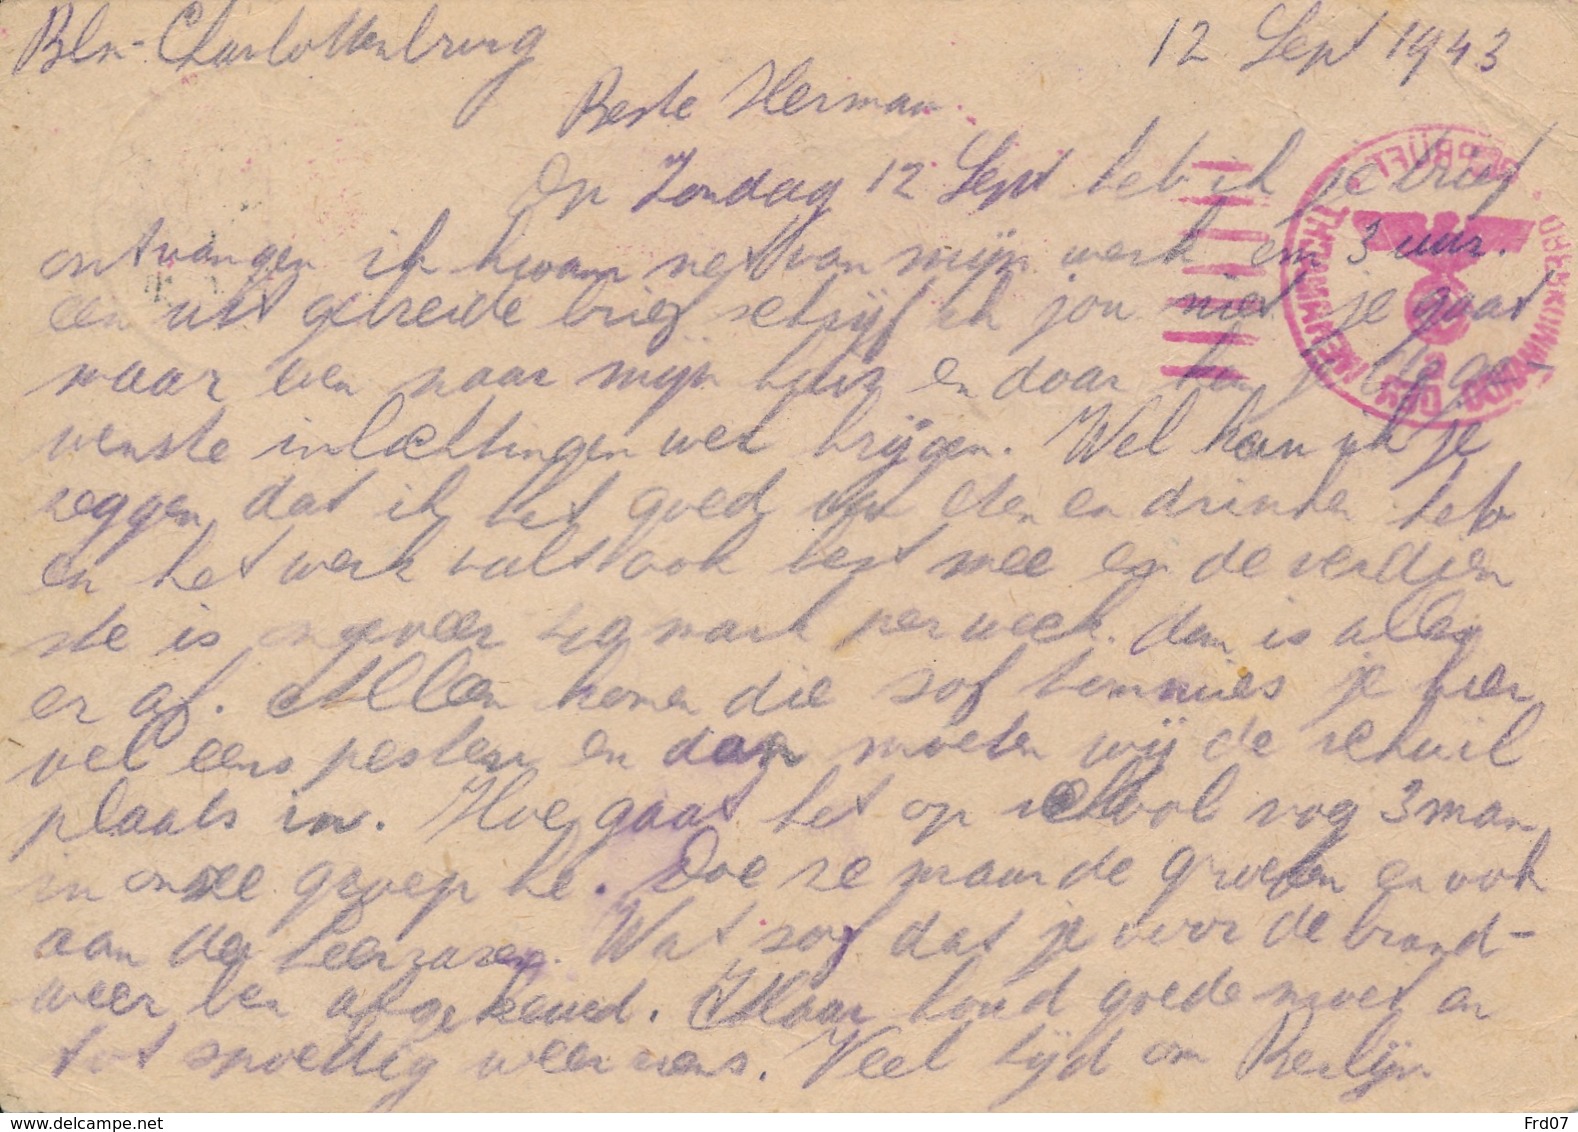 Bln-Charlottenburg 12 Sept 1943
Beste Herman.
Op Zondag 12 Sept heb ik je brief
ontvangen ik kwam net van mijn werk om 3 uur.
een uit gebreide brief schrijf ik jou niet je gaat
maar even naar mijn huis en daar kan je
wenste inlichtingen wel krijgen. Wel kan ik je
zeggen dat ik het goed van eten en drinken heb
en het werk valt ook best mee en de verdien
ste is ongeveer mark per week. dan is alles
er af. Alleen komen die rot tommies je hier
wel eens pesten en dan moeten wij de schuil
plaats in. Hoe gaat het op school nog 3 man
in onze groep he. Doe ze maar de groeten en ook
aan de Leeraren. Wat rot dat je voor de brand-
weer ben afgekeurd. Maar houd goede moet en
tot spoedig weer eens. Veel tijd om Berlijn
OBERKOMMANDO DER WEHRMACHT
GEPRÜFT
delcampe.net
Frd07